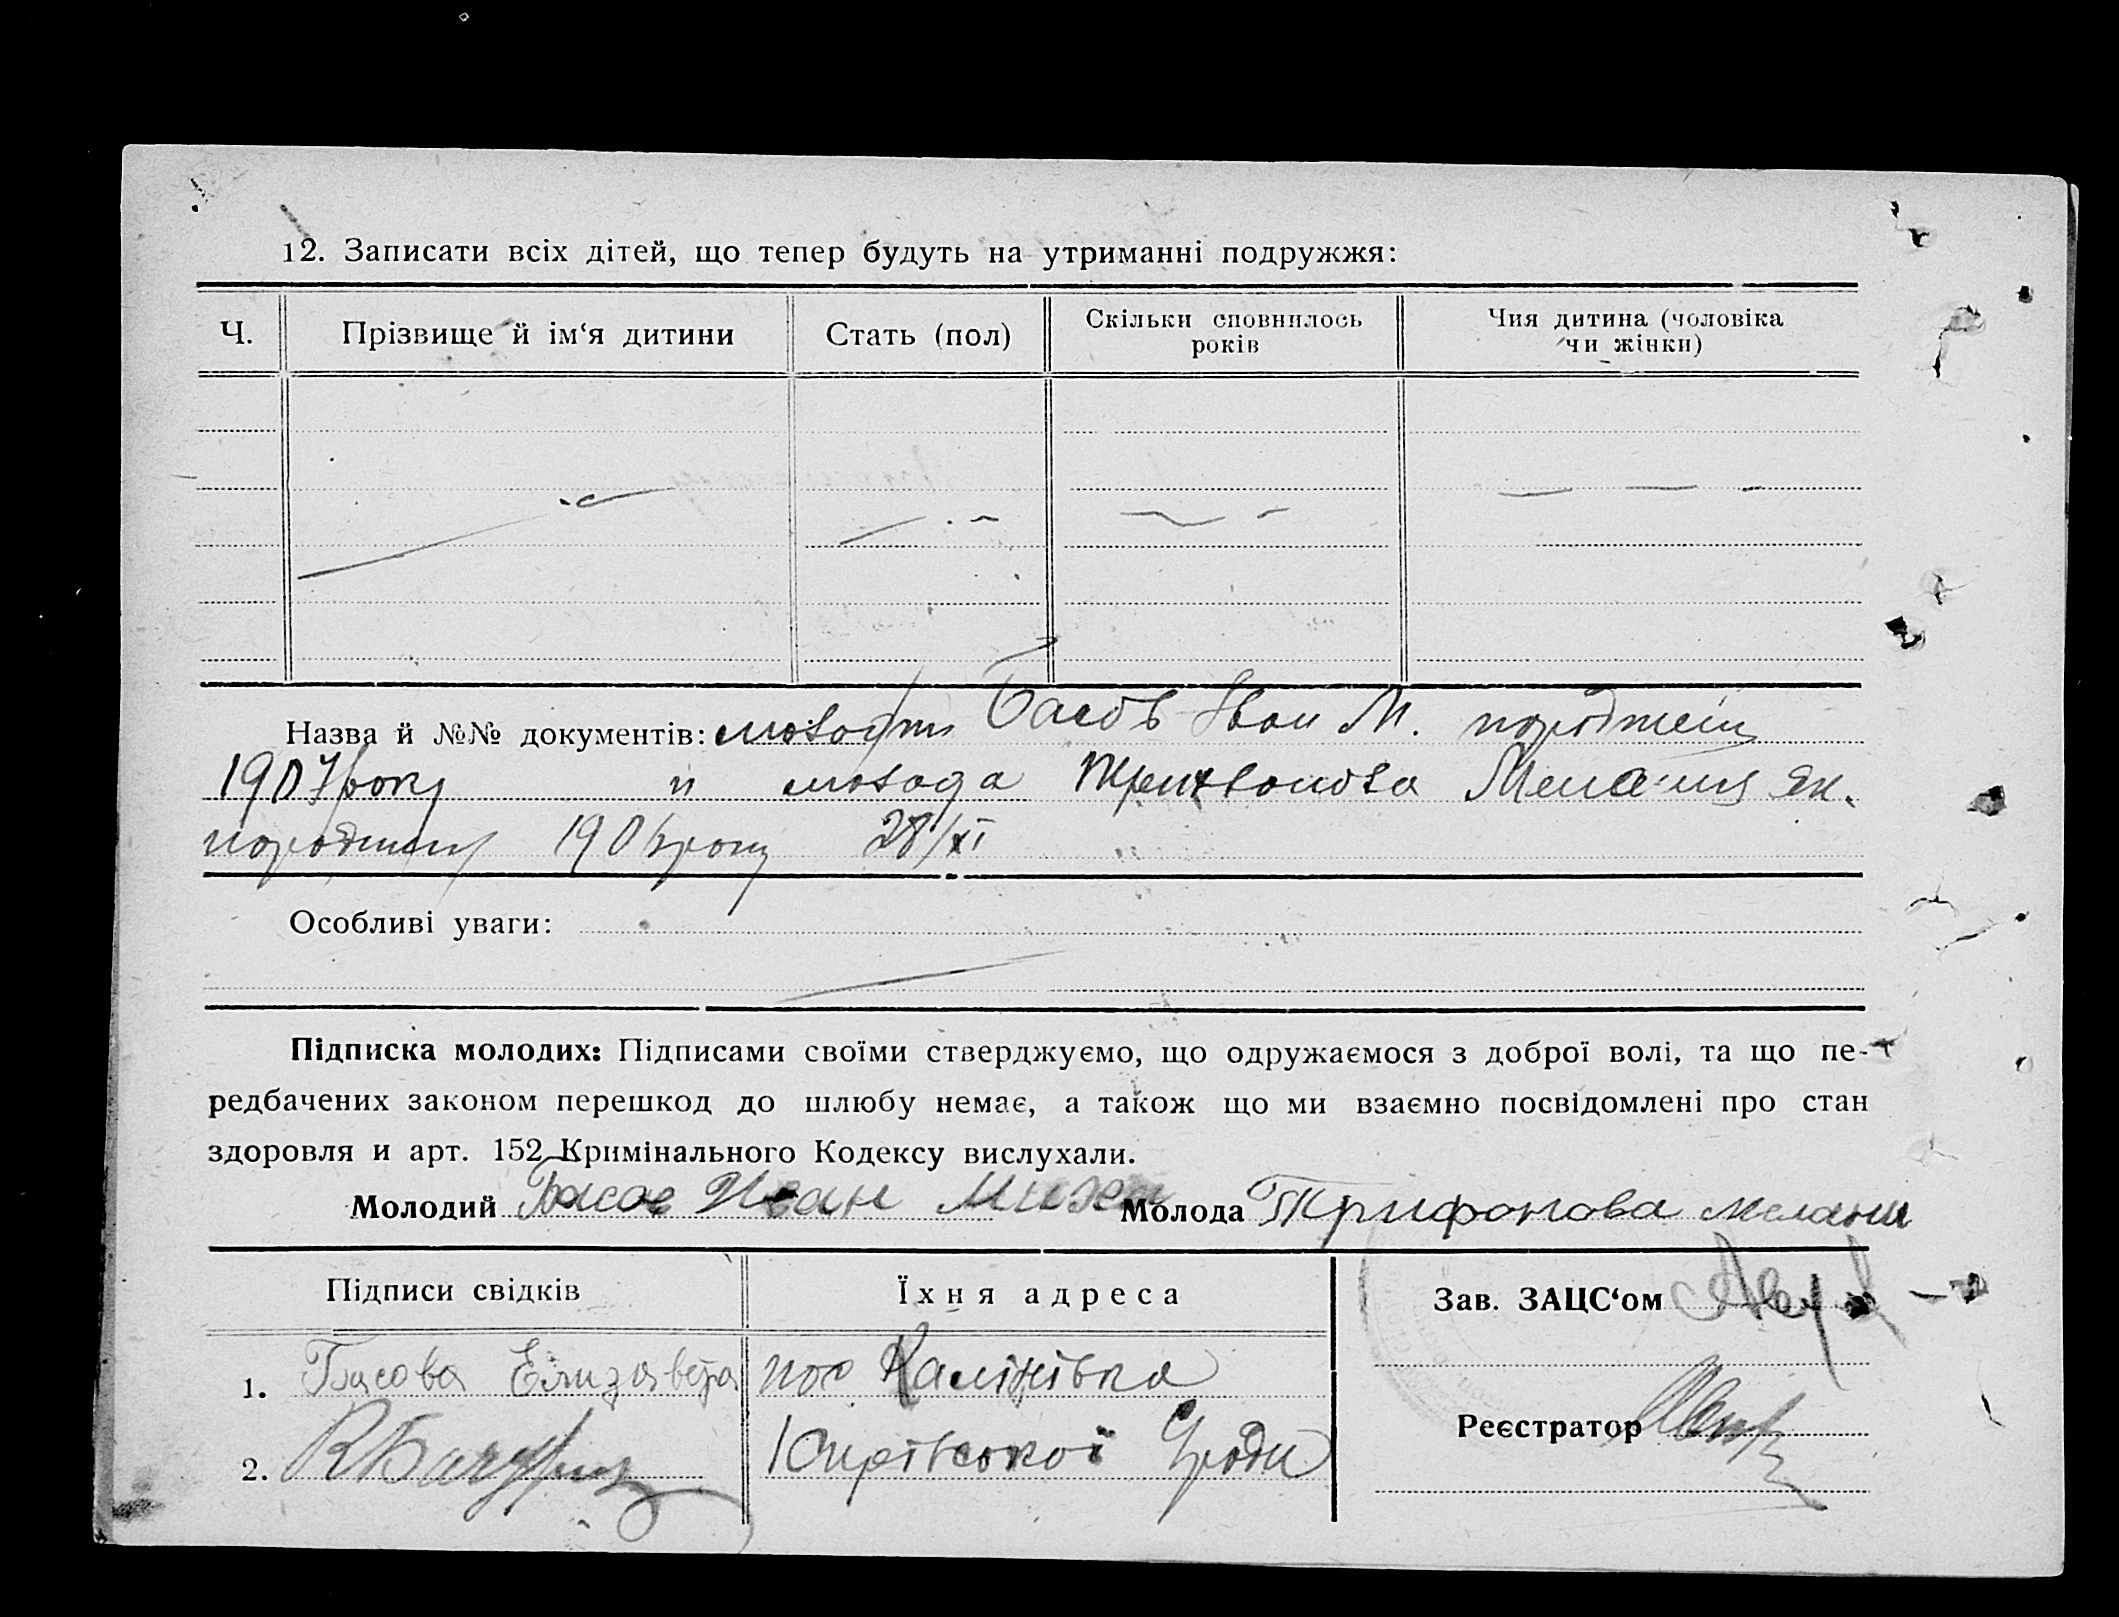 12. Записати всіх дітей, що тепер будуть на утриманні подружжя:
Ч.
Прізвище й ім‘я дитини
Стать (пол)
Скільки сповнилось
років
Чия дитина (чоловіка
чи жінки)
Назва й №№ документів: Басов Іван М.
1907 року и молода Мелания Як.
1906 року 28/XI
Особливі уваги:
Підписка молодих: Підписами своїми стверджуємо, що одружаємося з доброї волі, та що пе-
редбачених законом перешкод до шлюбу немає, а також що ми взаємно посвідомлені про стан
здоровля и арт. 152 Кримінального Кодексу вислухали.
Молодий Басов Иван Миха Молода Трифонова Мелания
Підписи свідків
Їхня адреса
Зав. ЗАЦС‘ом
1. Басова Елизавета
пос Калінівка
Реєстратор
2.